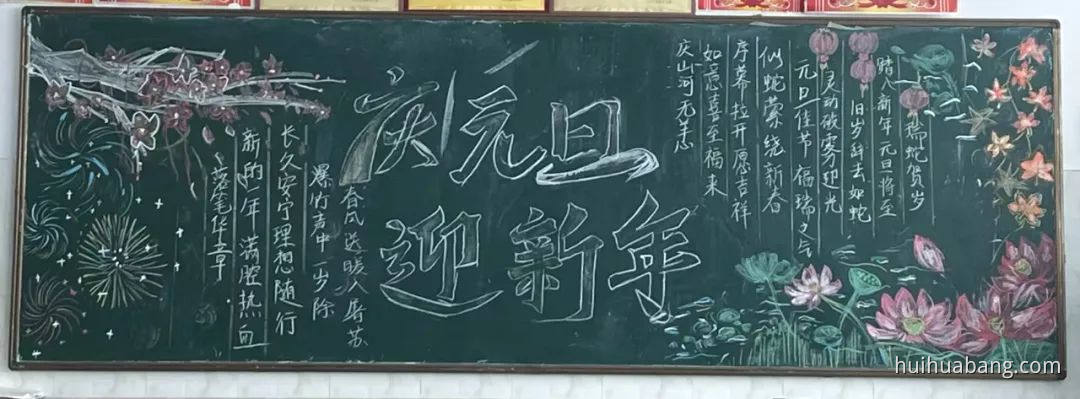 庆元旦
迎新年
瑞蛇贺岁
踏入新年元旦将至
旧岁辞去如蛇
灵动破雾迎光
元旦佳节福瑞之气
似蛇萦绕新春
序幕拉开愿吉祥
如意喜至福来
庆山河无恙
爆竹声中一岁除
春风送暖入屠苏
长久安宁理想随行
新的一年满腔热血
落笔华章
huihuabang.com